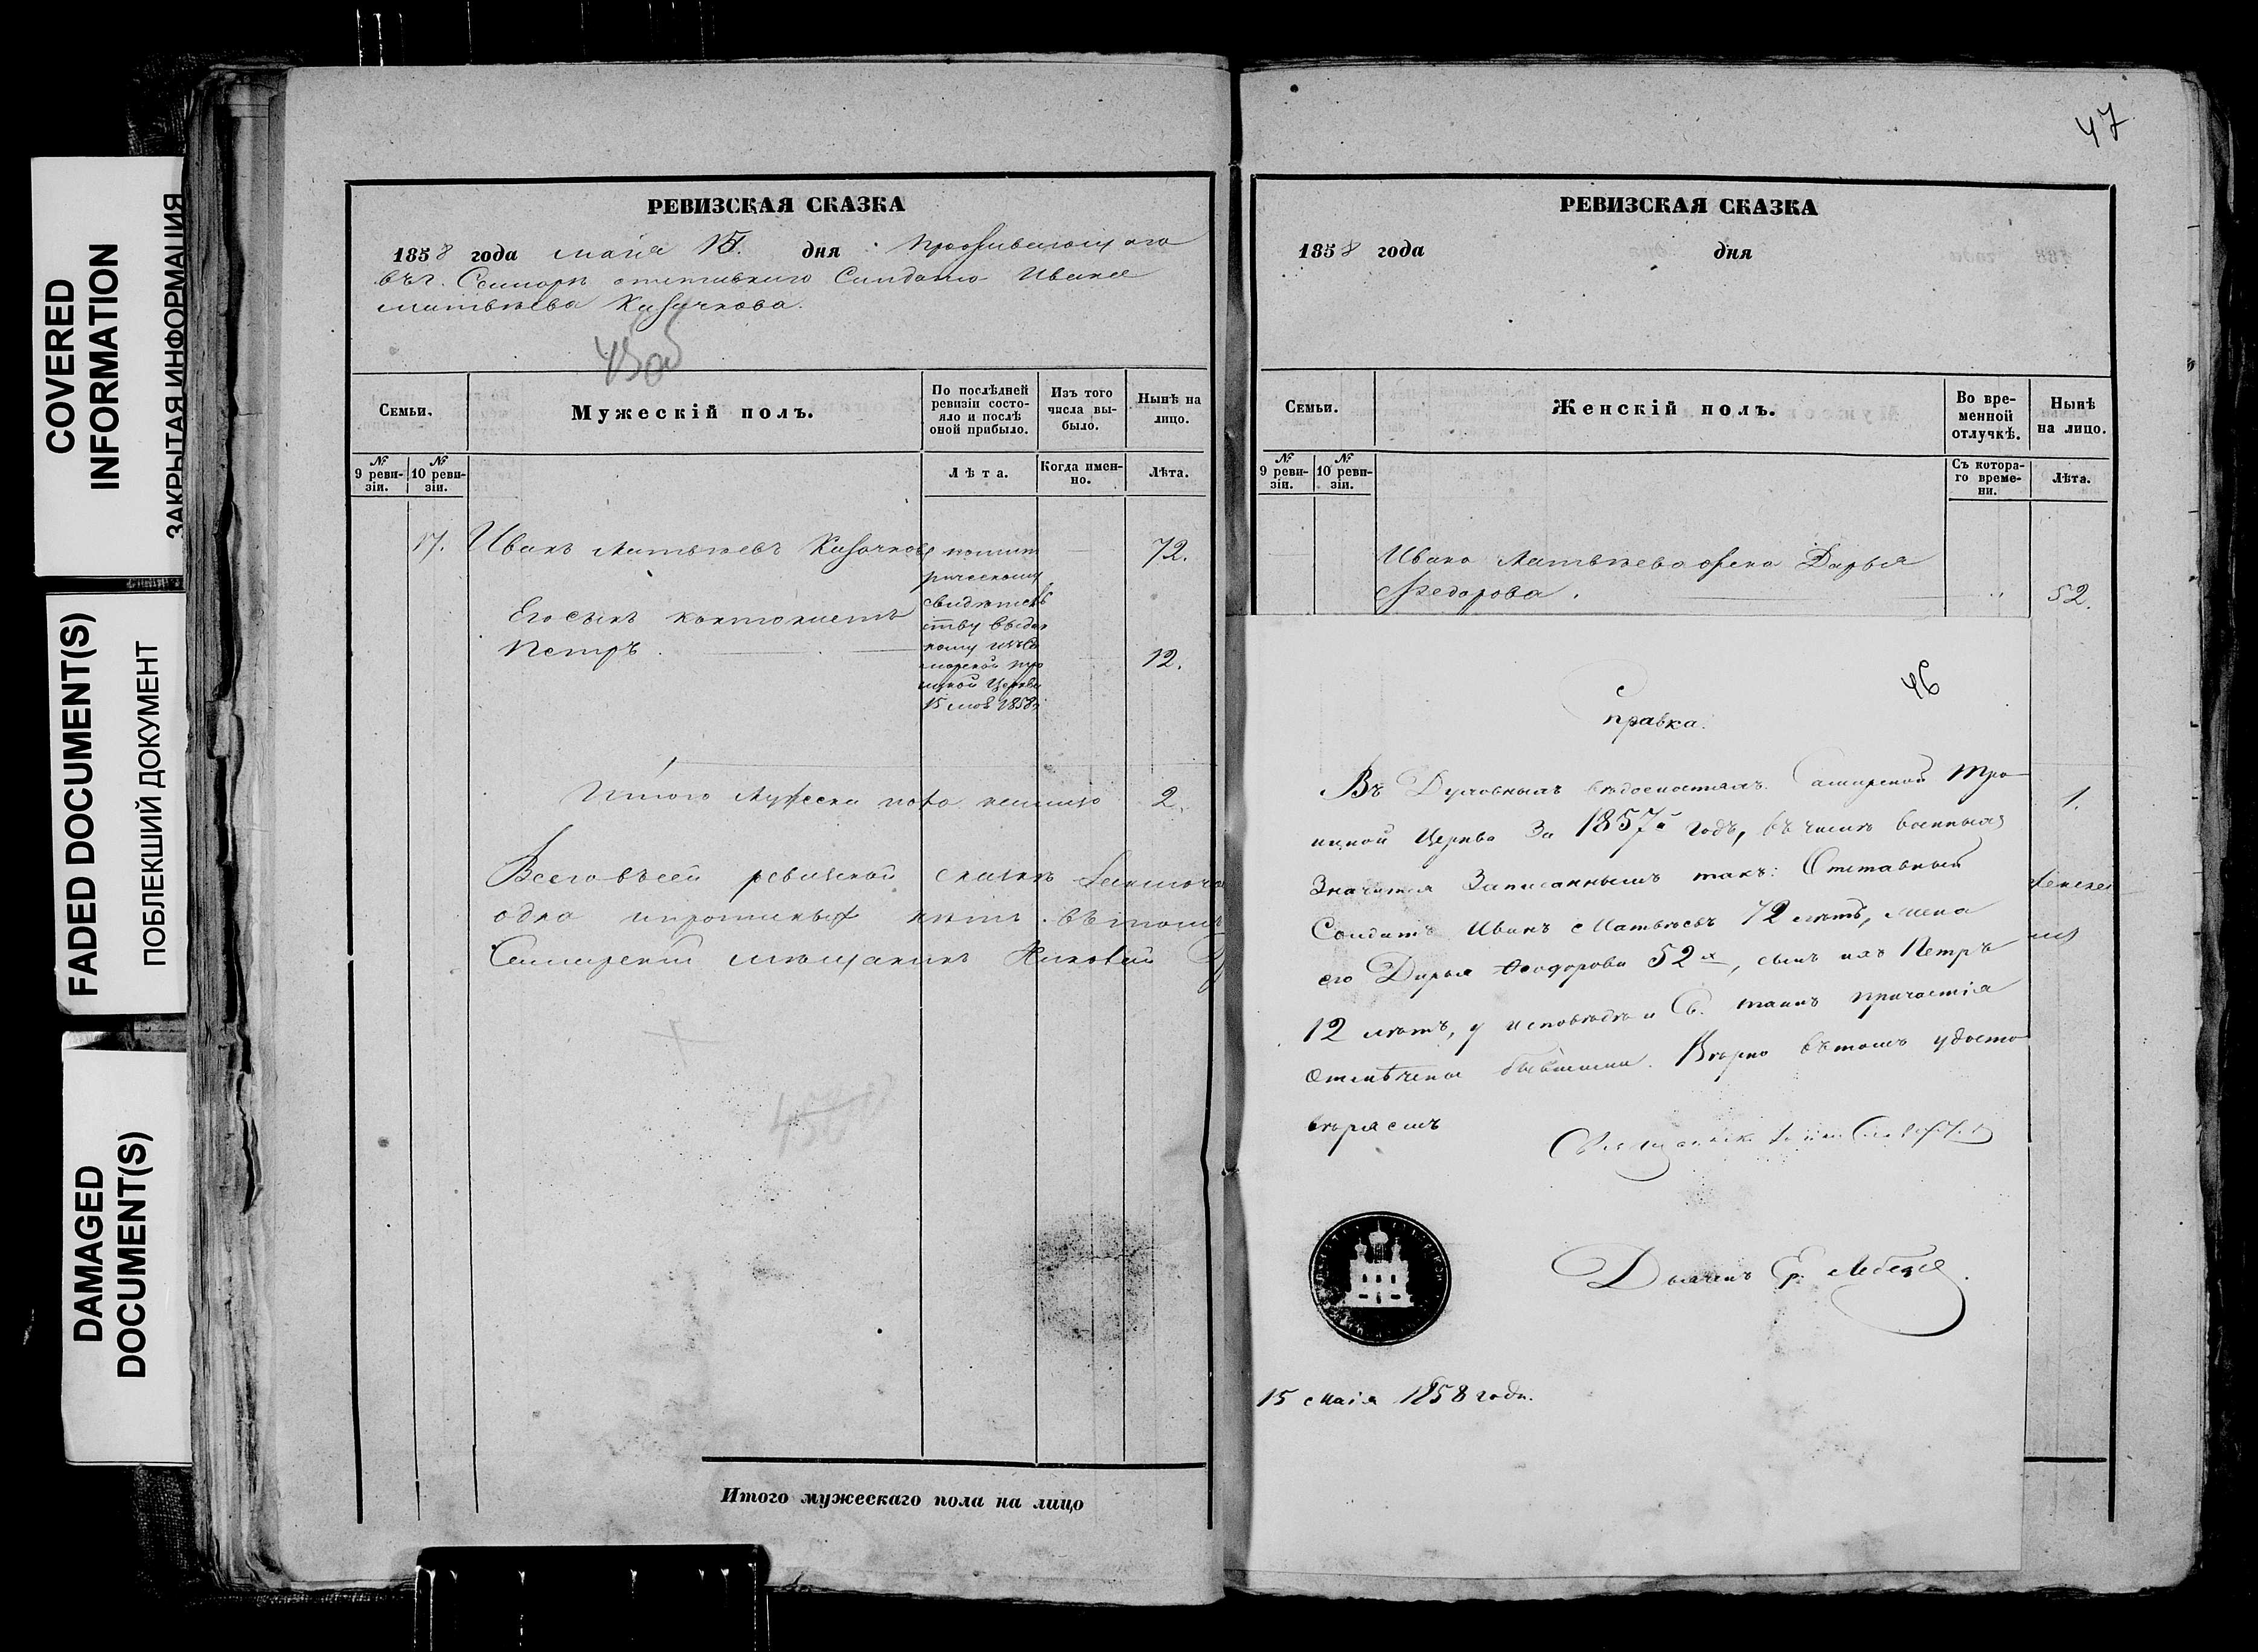 COVERED
INFORMATION
ЗАКРЫТАЯ ИНФОРМАЦИЯ
FADED DOCUMENT(S)
ПОБЛЕКШИЙ ДОКУМЕНТ
DAMAGED
DOCUMENT(S)
РЕВИЗСКАЯ СКАЗКА
1858 года маия 15. дня проживающаго
въ г. отставнаго Солдата Ивана
Матвѣева Казачкова.
Семьи.
Мужескій полъ.
По послѣдней
ревизіи состо-
яло и послѣ
оной прибыло.
Изъ того
числа вы-
было.
Нынѣ на
лицо.
№
9 реви-
зіи.
№
10 реви-
зіи.
Лѣта.
Когда имен-
но.
Лѣта.
17. Иванъ Матвѣевъ Казачковъ 72.
по метрическому
свидѣтель
ству выдан
ному изъ Са
марской Тро
ицкой Церкви
15 мая 1858 г.
Его сынъ кантонистъ
Петръ. 12.
Итого Мужеска пола налицо 2.
Всего въ сей ревизской сказкѣ
одна нѣтъ. въ томъ
мѣщанинъ
Итого мужескаго пола на лицо
47
РЕВИЗСКАЯ СКАЗКА
1858 года дня
Семьи.
Женскій полъ.
Во вре-
менной
отлучкѣ.
Нынѣ
на лицо.
№
9 реви-
зіи.
№
10 реви-
зіи.
Съ котора-
го време-
ни.
Лѣта.
Ивана Матвѣева жена Дарья
Федорова. 52.
1.
46
Справка.
Въ Духовныхъ вѣдомостяхъ Самарской Тро
ицкой Церкви За 1857й годъ, въ числѣ военныхъ
Значится Записаннымъ такъ: Отставный
Солдатъ Иванъ Матвѣевъ 72 лѣтъ, жена
его Дарья Феодорова 52х, сынъ ихъ Петръ
12 лѣтъ, у исповѣди и Св. таинъ причастія
Отмѣчены бывшими. Вѣрно въ томъ удосто
вѣряемъ
Священникъ
Дьячекъ
15 Маія 1858 года.